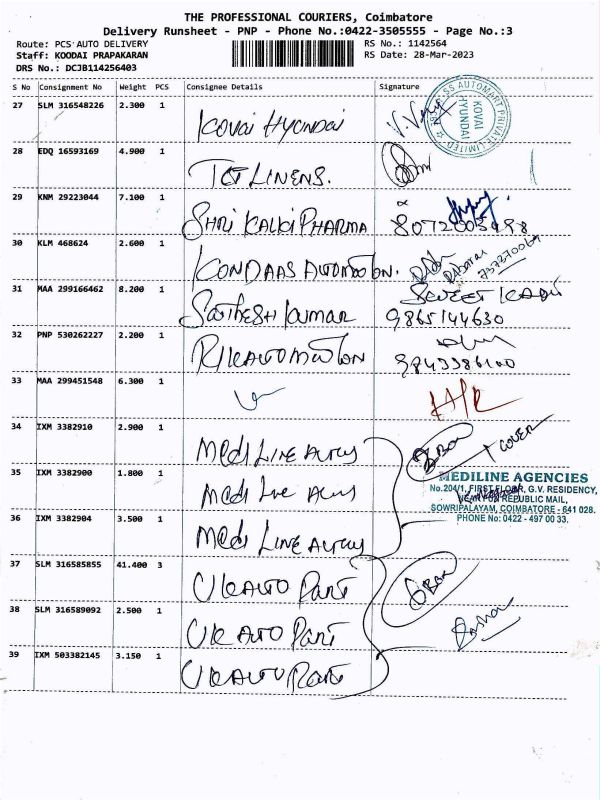 THE PROFESSIONAL COURIERS, Coimbatore
Delivery Runsheet - PNP - Phone No.:0422-3505555 - Page No.:3
Route: PCS AUTO DELIVERY
Staff: KOODAI PRAPAKARAN
DRS No.: DCJB114256403
RS No.: 1142564
RS Date: 28-Mar-2023
S No Consignment No Weight PCS Consignee Details Signature
27 SLM 316548226 2.300 1 Kovai Hyundai
SS AUTOMART PRIVATE LIMITED
KOVAI HYUNDAI
28 EDQ 16593169 4.900 1 TCT LINENS.
29 KNM 29223044 7.100 1 SHRI KALKI PHARMA
30 KLM 468624 2.600 1 KONDAAS AUTOMATION.
31 MAA 299166462 8.200 1 Sathesh Kumar 9865144630
32 PNP 530262227 2.200 1 RK AUTOMATION
33 MAA 299451548 6.300 1
34 IXM 3382910 2.900 1 Medi Line
35 IXM 3382900 1.800 1
36 IXM 3382904 3.500 1 Medi Line
1 COVER
MEDILINE AGENCIES
No.204/1, FIRST FLOOR, G.V. RESIDENCY,
NEAR FUN REPUBLIC MAIL,
SOWRIPALAYAM, COIMBATORE - 641 028.
PHONE No: 0422 - 497 00 33.
37 SLM 316585855 41.400 3 UK AUTO Part
38 SLM 316589092 2.500 1 UK AUTO Part
39 IXM 503382145 3.150 1 UK AUTO Part